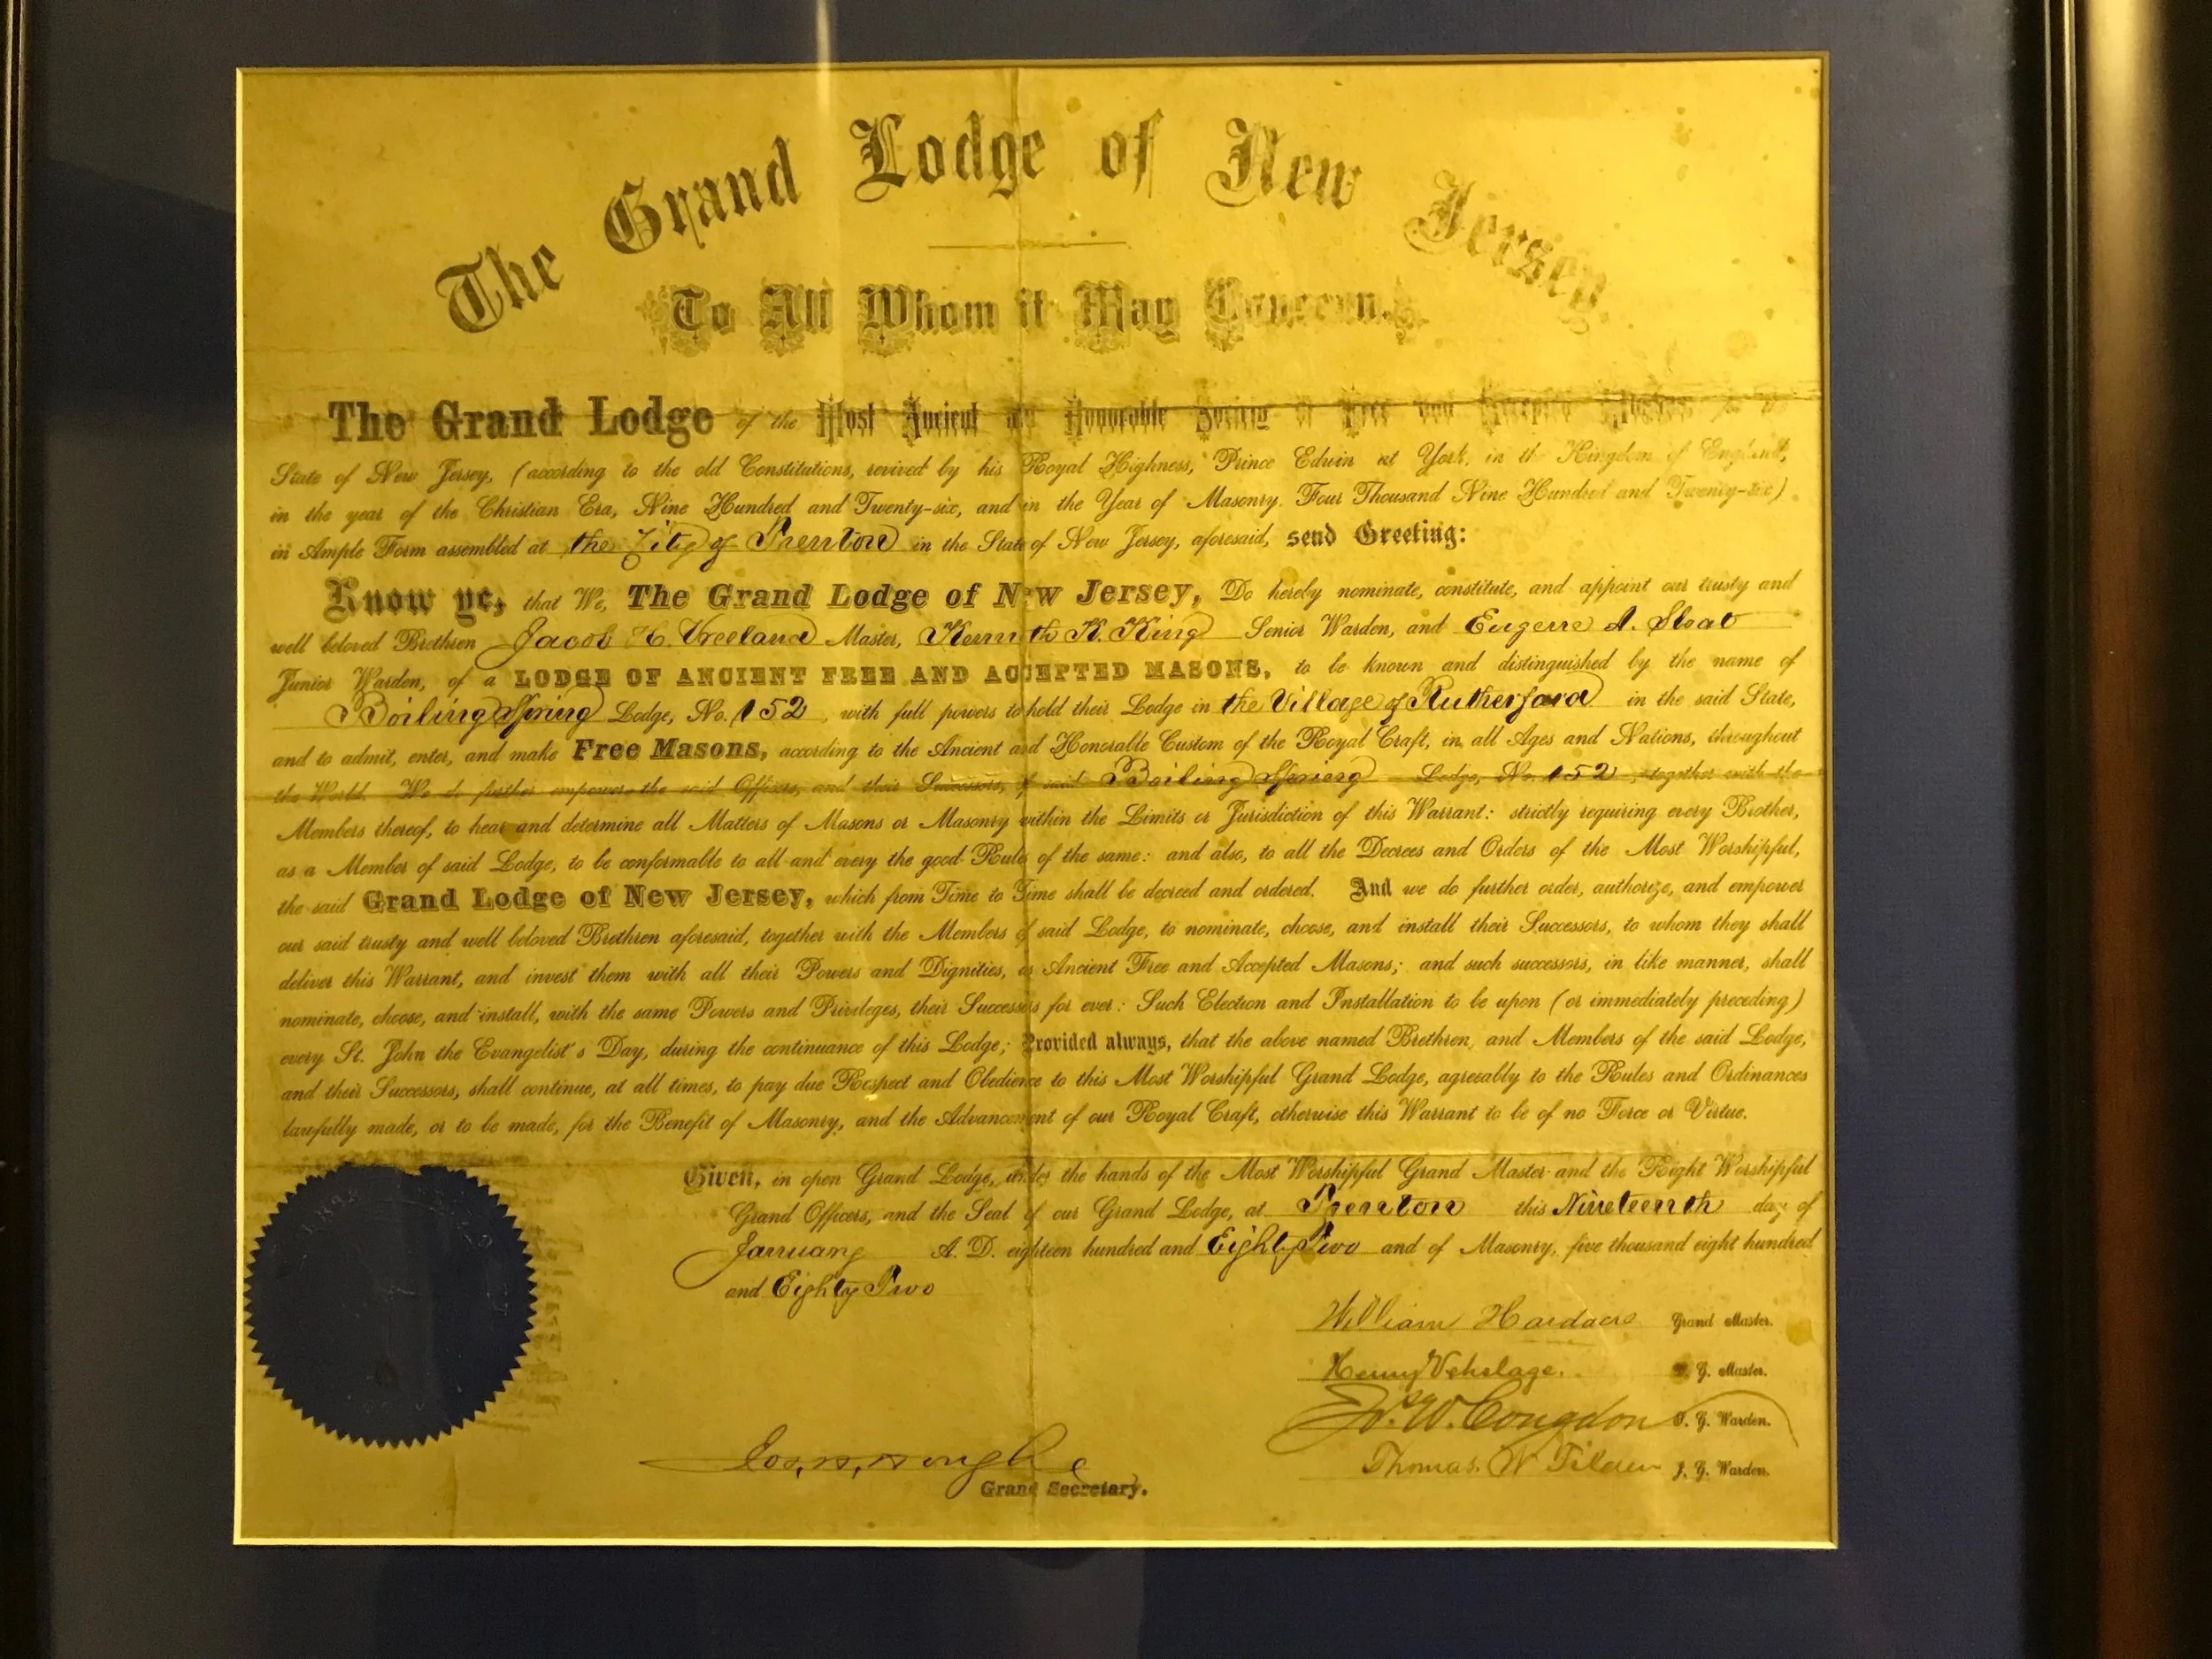 The Grand Lodge of New Jersey.
To All Whom it May Concern.
The Grand Lodge of the Most Ancient and Honorable Society of Free and Accepted Masons,
State of New Jersey, (according to the old Constitutions, revived by his Royal Highness, Prince Edwin at York, in the Kingdom of England,
in the year of the Christian Era, Nine Hundred and Twenty-six, and in the Year of Masonry, Four Thousand Nine Hundred and Twenty-six)
in Ample Form assembled at the City of Trenton in the State of New Jersey, aforesaid, send Greeting:
Know ye, that We, The Grand Lodge of New Jersey, Do hereby nominate, constitute, and appoint our trusty and
well beloved Brethren Jacob H. Vreeland Master, Kenneth K. King Senior Warden, and Eugene A. Sloat
Junior Warden, of a LODGE OF ANCIENT FREE AND ACCEPTED MASONS, to be known and distinguished by the name of
Boiling Spring Lodge, No. 152, with full powers to hold their Lodge in the Village of Rutherford in the said State,
and to admit, enter, and make Free Masons, according to the Ancient and Honorable Custom of the Royal Craft, in all Ages and Nations, throughout
the World. We do further empower the said Officers, and their Successors, of said Boiling Spring Lodge, No. 152, together with the
Members thereof, to hear and determine all Matters of Masons or Masonry within the Limits or Jurisdiction of this Warrant: strictly requiring every Brother,
as a Member of said Lodge, to be conformable to all and every the good Rules of the same: and also, to all the Decrees and Orders of the Most Worshipful,
the said Grand Lodge of New Jersey, which from Time to Time shall be decreed and ordered. And we do further order, authorize, and empower
our said trusty and well beloved Brethren aforesaid, together with the Members of said Lodge, to nominate, choose, and install their Successors, to whom they shall
deliver this Warrant, and invest them with all their Powers and Dignities, as Ancient Free and Accepted Masons; and such successors, in like manner, shall
nominate, choose, and install, with the same Powers and Privileges, their Successors for ever: Such Election and Installation to be upon (or immediately preceding)
every St. John the Evangelist's Day, during the continuance of this Lodge; Provided always, that the above named Brethren, and Members of the said Lodge,
and their Successors, shall continue, at all times, to pay due Respect and Obedience to this Most Worshipful Grand Lodge, agreeably to the Rules and Ordinances
lawfully made, or to be made, for the Benefit of Masonry, and the Advancement of our Royal Craft, otherwise this Warrant to be of no Force or Virtue.
Given, in open Grand Lodge, under the hands of the Most Worshipful Grand Master and the Right Worshipful
Grand Officers, and the Seal of our Grand Lodge, at Trenton this Nineteenth day of
January A. D. eighteen hundred and Eighty Two and of Masonry, five thousand eight hundred
and Eighty Two
William Hardacre Grand Master.
Henry Vehslage. D. G. Master.
W. Congdon S. G. Warden.
Thomas W Tilden J. G. Warden.
Hough
Grand Secretary.